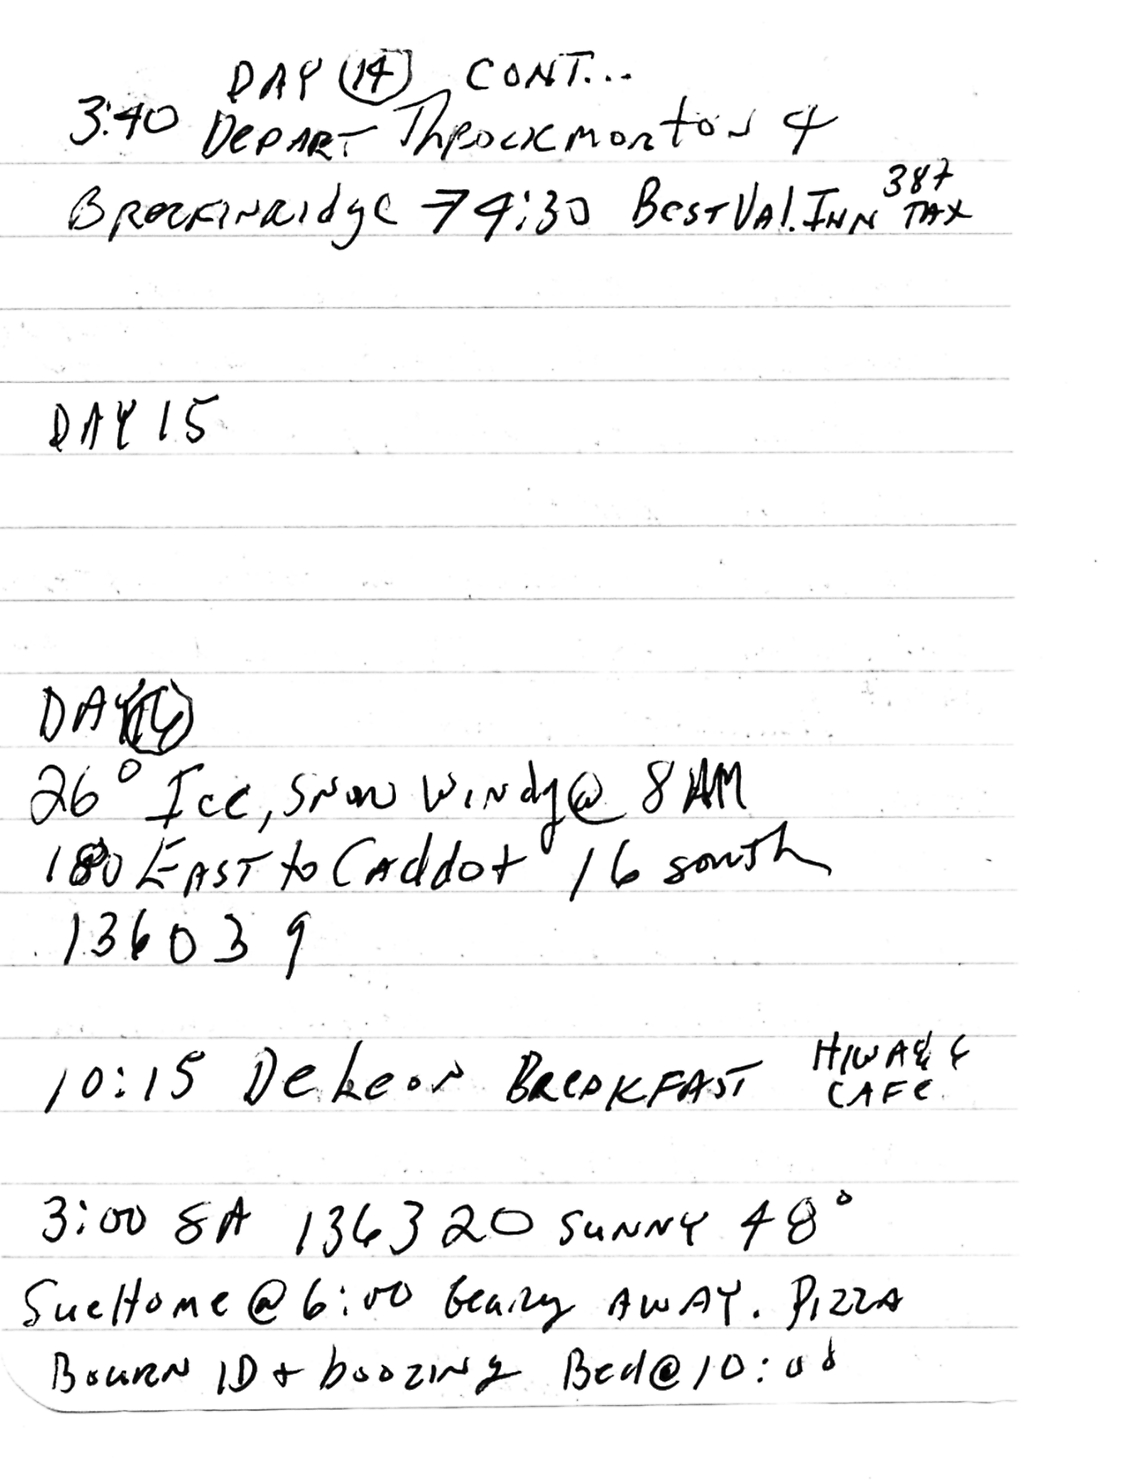 DAY 14 CONT...
3:40 DEPART Throckmorton 4
Breckinridge → 4:30 BEST VAL. INN 387 TAX
DAY 15
DAY 16
26° Ice, Snow Windy @ 8 AM
180 EAST to Caddot 16 south
136039
10:15 DeLeon BREAKFAST HIWAY 6 CAFE.
3:00 SA 136320 SUNNY 48°
Sue Home @ 6:00 Geary AWAY. PIZZA
BOURN ID + boozing Bed @ 10:00